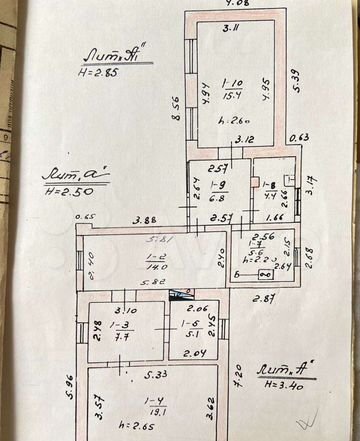 4.08
3.11
Лит „А1"
Н=2.85
8.56
4.94
1-10
15.4
4.95
5.39
h=2.60
3.12
0.63
Лит „а"
Н=2.50
2.57
2.64
1-9
6.8
1-8
4.4
2.66
3.17
0.65
3.88
2.57
1.66
5.81
2.40
1-2
14.0
2.40
5.82
2.56
1-7
5.6
h=2.20
2.15
2.64
2.68
Б
2.87
3.10
2.48
1-3
7.7
2.06
1-5
5.1
2.45
2.04
5.96
5.33
3.57
1-4
19.1
3.62
h=2.65
7.20
Лит „А"
Н=3.40